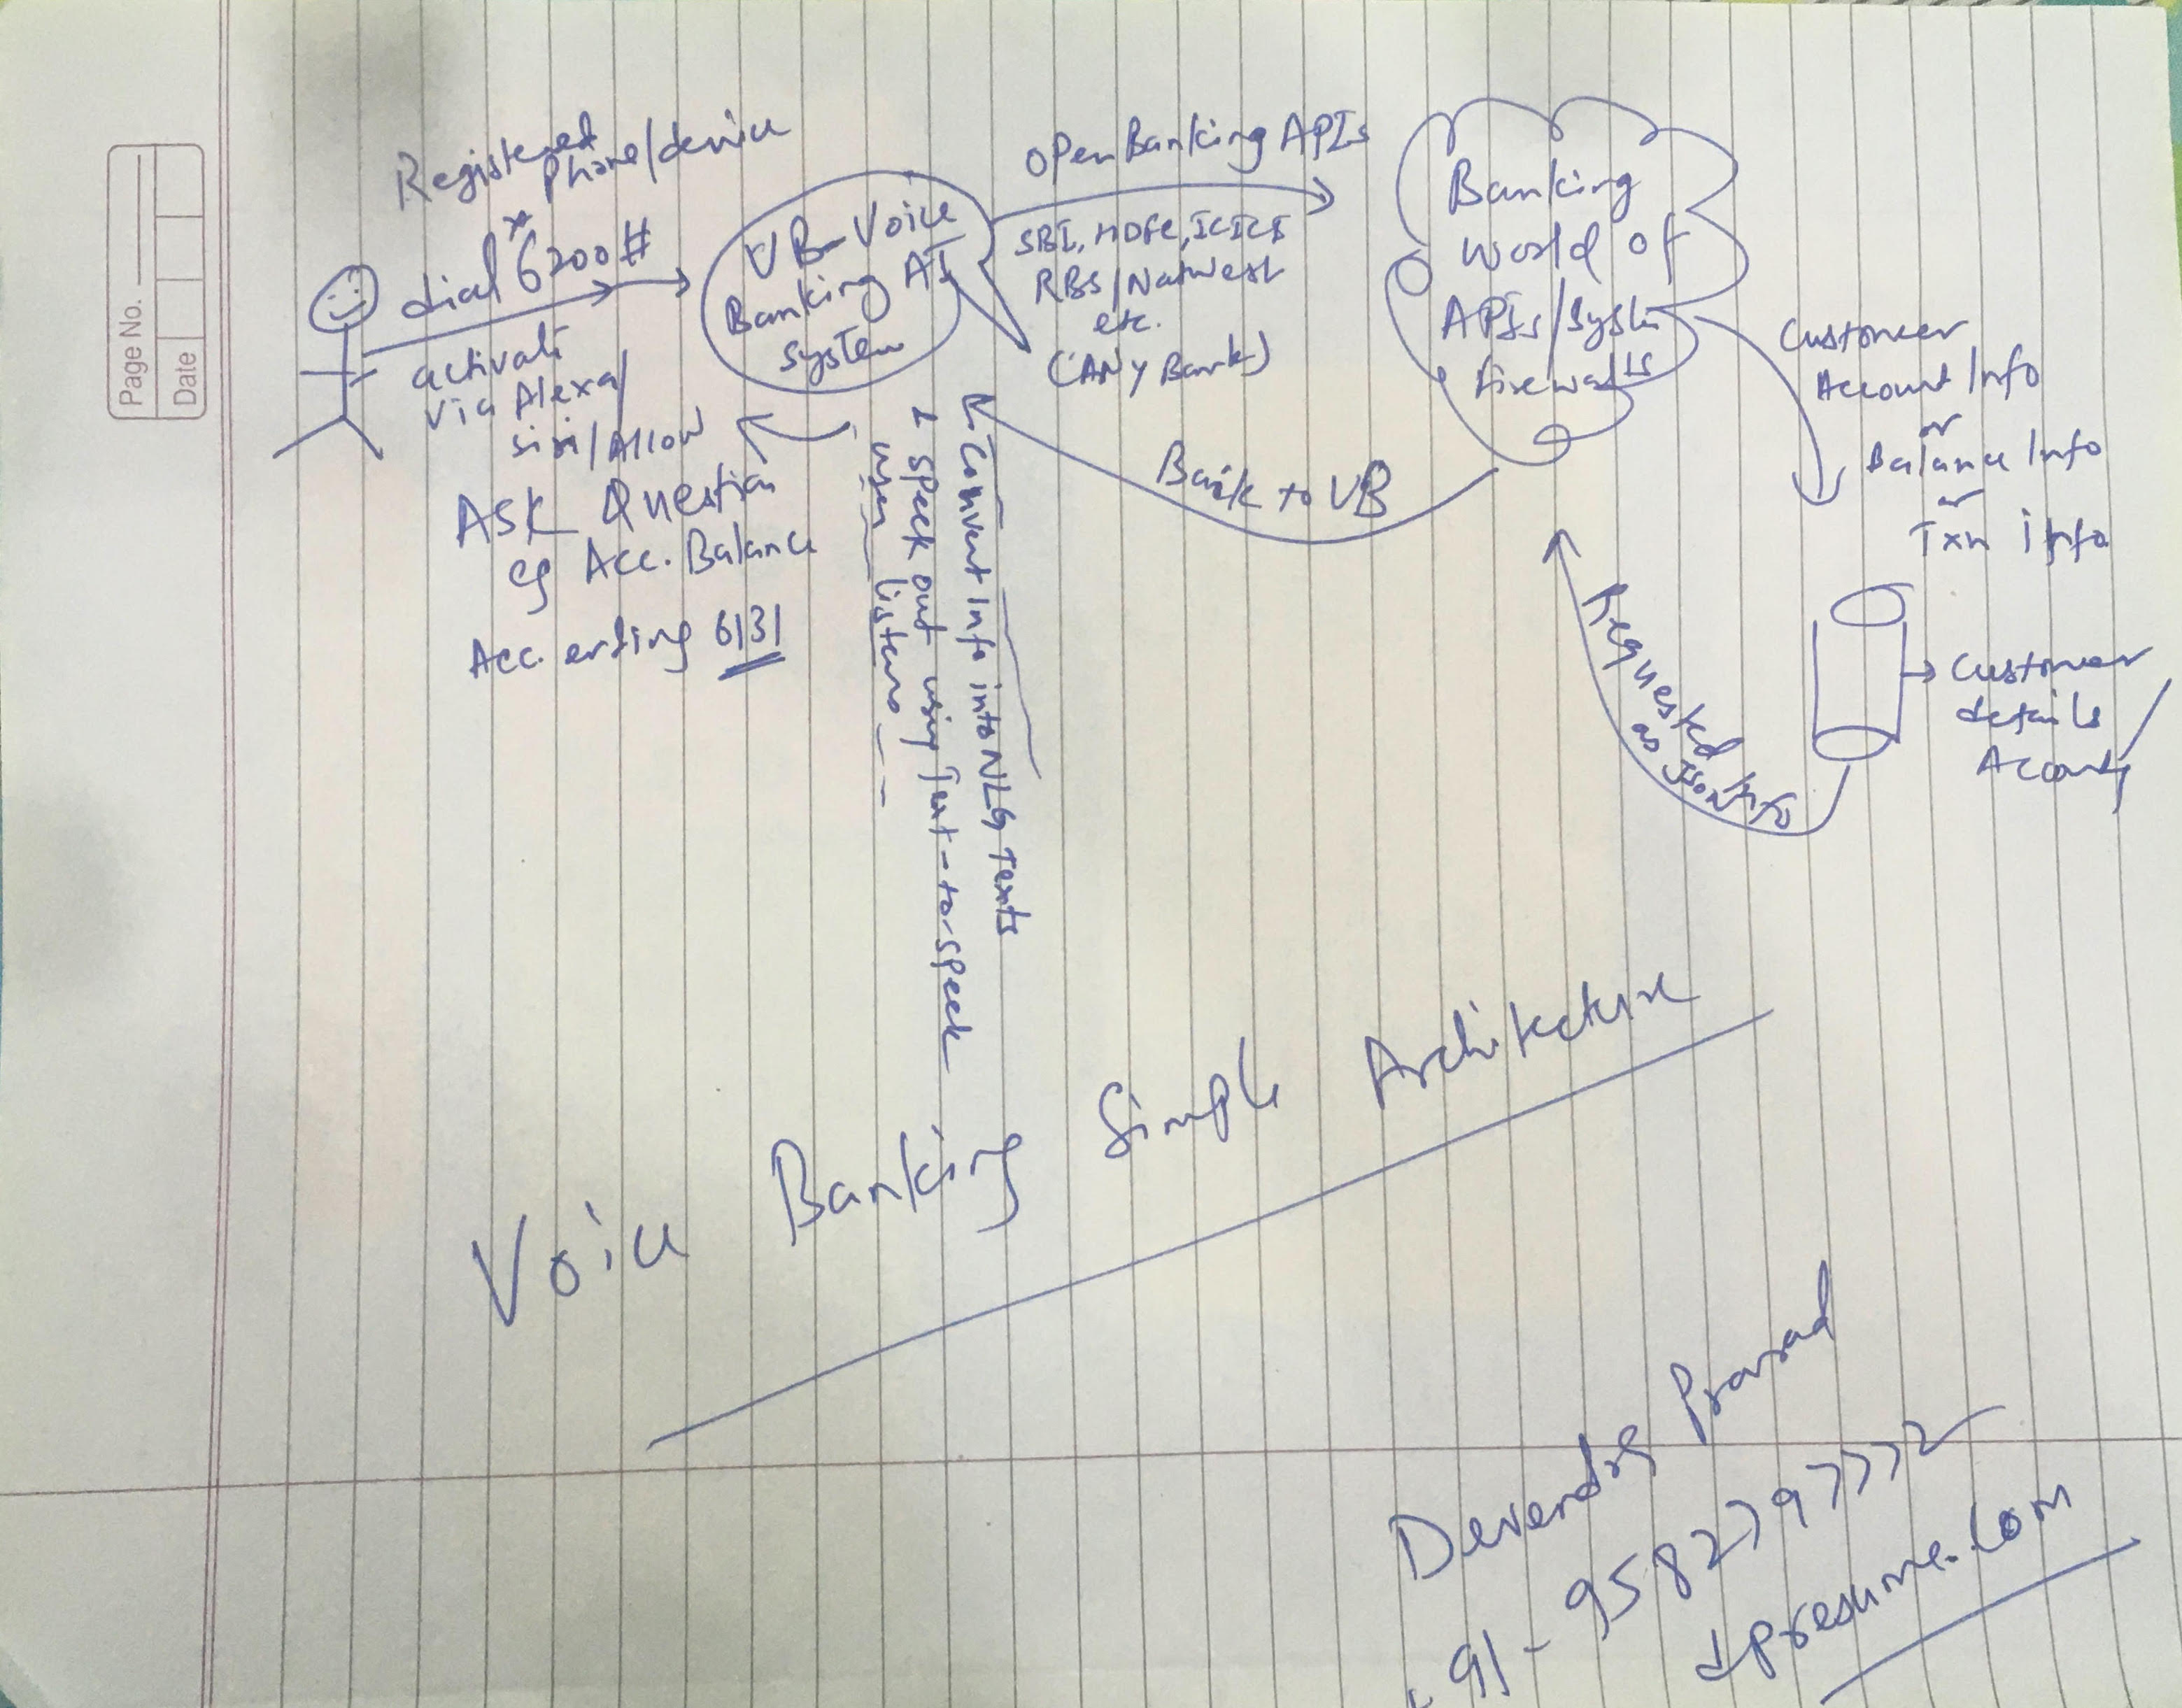 Page No.
Date
Registered
Phone/device
dial *6200#
activate
via Alexa/
siri/Allow
ASK Question
eg Acc. Balance
Acc. ending 6131
VB-Voice
Banking AI
system
Open Banking APIs
SBI, HDFC, ICICI
RBS/Natwest
etc.
(ANY Bank)
Banking
world of
APIs/System
firewalls
Customer
Account Info
or
Balance Info
or
Txn info
Customer
details
Requested info
as json
Back to VB
convert Info into NLG Texts
& speek out using Text-to-speek
user listens
Voice Banking Simple Architecture
Devendra Prasad
91-9582797772
dpresume.com